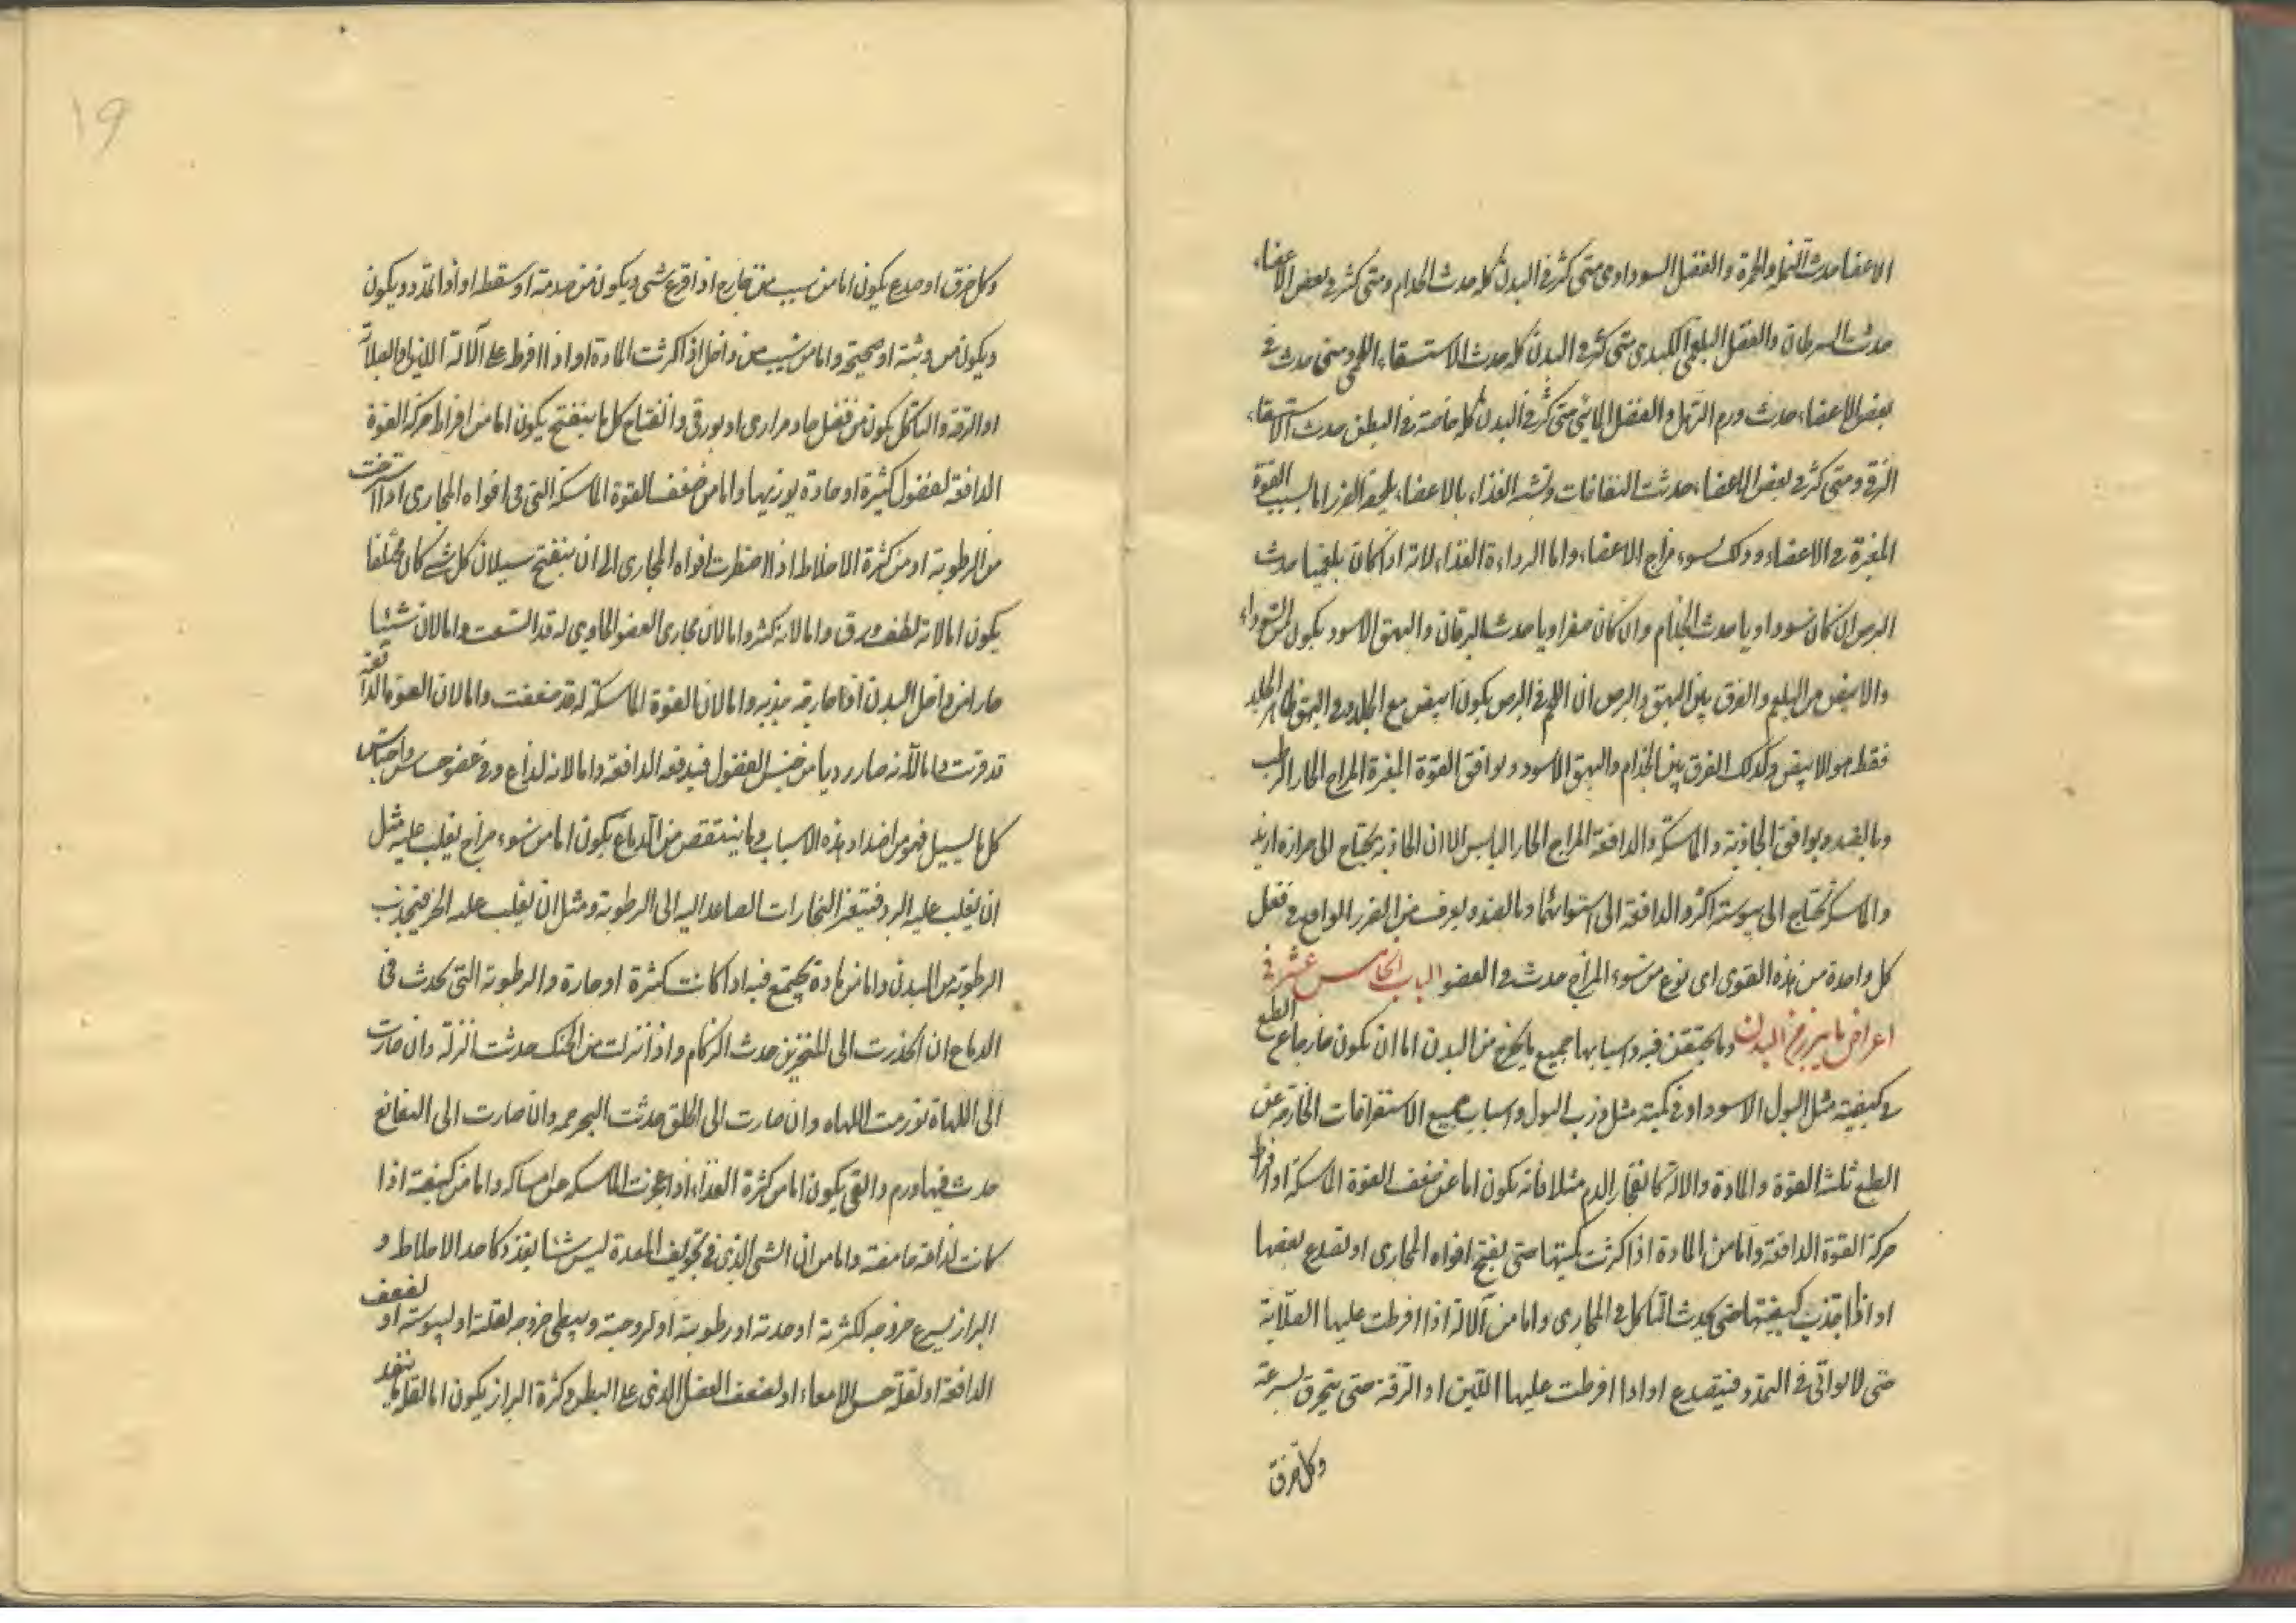 الاعضا حدث النملة والحمرة والفضل السوداوى متى كثر فى البدن كله حدث الجذام ومتى كثر فى بعض الاعضاء
حدث السرطان والفضل البلغمى الكبدى متى كثر فى البدن كله حدث الاستسقاء اللحمى ومتى حدث فى
بعض الاعضاء حدث ورم الترهل والفضل المائى متى كثر فى البدن كله خاصة فى البطن حدث الاستسقاء
الزقى ومتى كثر فى بعض الاعضاء حدثت النفاخات وتشبه الغذاء بالاعضاء يلحقه الضرر اما بسبب القوة
المغيرة فى الاعضاء وذلك لسوء مزاج الاعضاء واما لرداءة الغذاء لانه اذا كان بلغميا حدث
البرص ان كان سوداويا حدث الجذام وان كان صفراويا حدث اليرقان والبهق الاسود يكون من السوداء
والابيض من البلغم والفرق بين البهق والبرص ان اللحم فى البرص يكون ابيض مع الجلد وفى البهق ظاهر الجلد
فقط هو الابيض وكذلك الفرق بين الجذام والبهق الاسود ويوافق القوة المغيرة المزاج الحار الرطب
وبالضد ويوافق الجاذبة والماسكة والدافعة المزاج الحار اليابس الا ان الجاذبة تحتاج الى حرارة ازيد
والماسكة تحتاج الى يبوسة اكثر والدافعة الى استوائهما وبالضد ويعرف من الضرر الواقع فى فعل
كل واحدة من هذه القوى اى نوع من سوء المزاج حدث فى العضو الباب الخامس عشر فى
اعراض ما يبرز من البدن وما يحتقن فيه واسبابها جميع ما يخرج من البدن اما ان يكون خارجا عن الطبع
فى كيفيته مثل البول الاسود او فى كميته مثل ذرب البول واسباب جميع الاستفراغات الخارجة عن
الطبع ثلثة القوة والمادة والالة كانفجار الدم مثلا فانه يكون اما عن ضعف القوة الماسكة او افراط
حركة القوة الدافعة واما من المادة اذا كثرت كميتها حتى يفتح افواه المجارى او تصدع بعضها
او اذا كيفيتها حتى يحدث التاكل فى المجارى واما من الالة اذا افرطت عليها الصلابة
حتى لا تواتى فى التمدد فيتصدع او اذا افرطت عليها اللين او الرقة حتى يتخرق بسرعة
وكل خرق
١٩
وكل خرق او صدع يكون اما من سبب من خارج اذا قرع شى ويكون من صدمة او سقطه او اذا تمدد ويكون
ويكون من وثبة او صيحة واما من سبب من داخل اذا كثرت المادة او اذا افرط على الالة اللين او الصلابة
او الرقة والتاكل يكون من فضل حاد مرارى او بورقى وانفتاح كل ما ينفتح يكون اما من افراط حركة القوة
الدافعة لفضول كثيرة او حادة يوذيها واما من ضعف القوة الماسكة التى فى افواه المجارى اذا استرخت
من الرطوبة او من كثرة الاخلاط اذا اضطرت افواه المجارى الى ان ينفتح سيلان كل شئ كان محتقنا
يكون اما لانه لطف ورق واما لانه كثر واما لان مجارى العضو الحاوى له قد اتسعت واما لان شيئا
خارا من داخل البدن او خارجه جذبه واما لان القوة الماسكة له قد ضعفت واما لان القوة الدافعة
قد قويت واما لانه صار رديا من جنس الفضول فيدفعه الدافعة واما لانه لذاع وفى عضو حساس واحتباس
كل ما يسيل فهو من اضداد هذه الاسباب وما ينتقص من الدماغ يكون اما من سوء مزاج يغلب عليه مثل
ان يغلب عليه البرد فيتغير البخارات الصاعدة اليه الى الرطوبة ومثل ان يغلب عليه الحر فيجذب
الرطوبة من البدن واما من مادة يجتمع فيه اذا كانت كثيرة او حارة والرطوبة التى تحدث فى
الدماغ ان انحدرت الى المنخرين حدث الزكام واذا نزلت من الحنك حدثت النزلة وان صارت
الى اللهاة تورمت اللهاه وان صارت الى الحلق حدثت البحرحه وان صارت الى النغانغ
حدث فيها ورم والقى يكون اما من كثرة الغذاء اذا عجزت الماسكه عن امساكه واما من كيفيته اذا
كانت لذاعة حامضة واما من ان الشى الذى فى تجويف المعدة ليس شئا يغذو كاحد الاخلاط و
البراز يسرع خروجه لكثرته او حدته او رطوبته او لزوجته ويبطى خروجه لقلته او ليبوسته او لضعف
الدافعة او لقلة حس الامعاء او لضعف العضل الذى على البطن وكثرة البراز يكون اما لقلة ما ينفذ